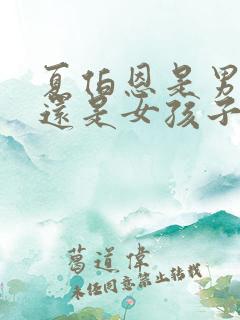 夏伯恩是男
還是女孩子
葛道偉
未经同意禁止转载